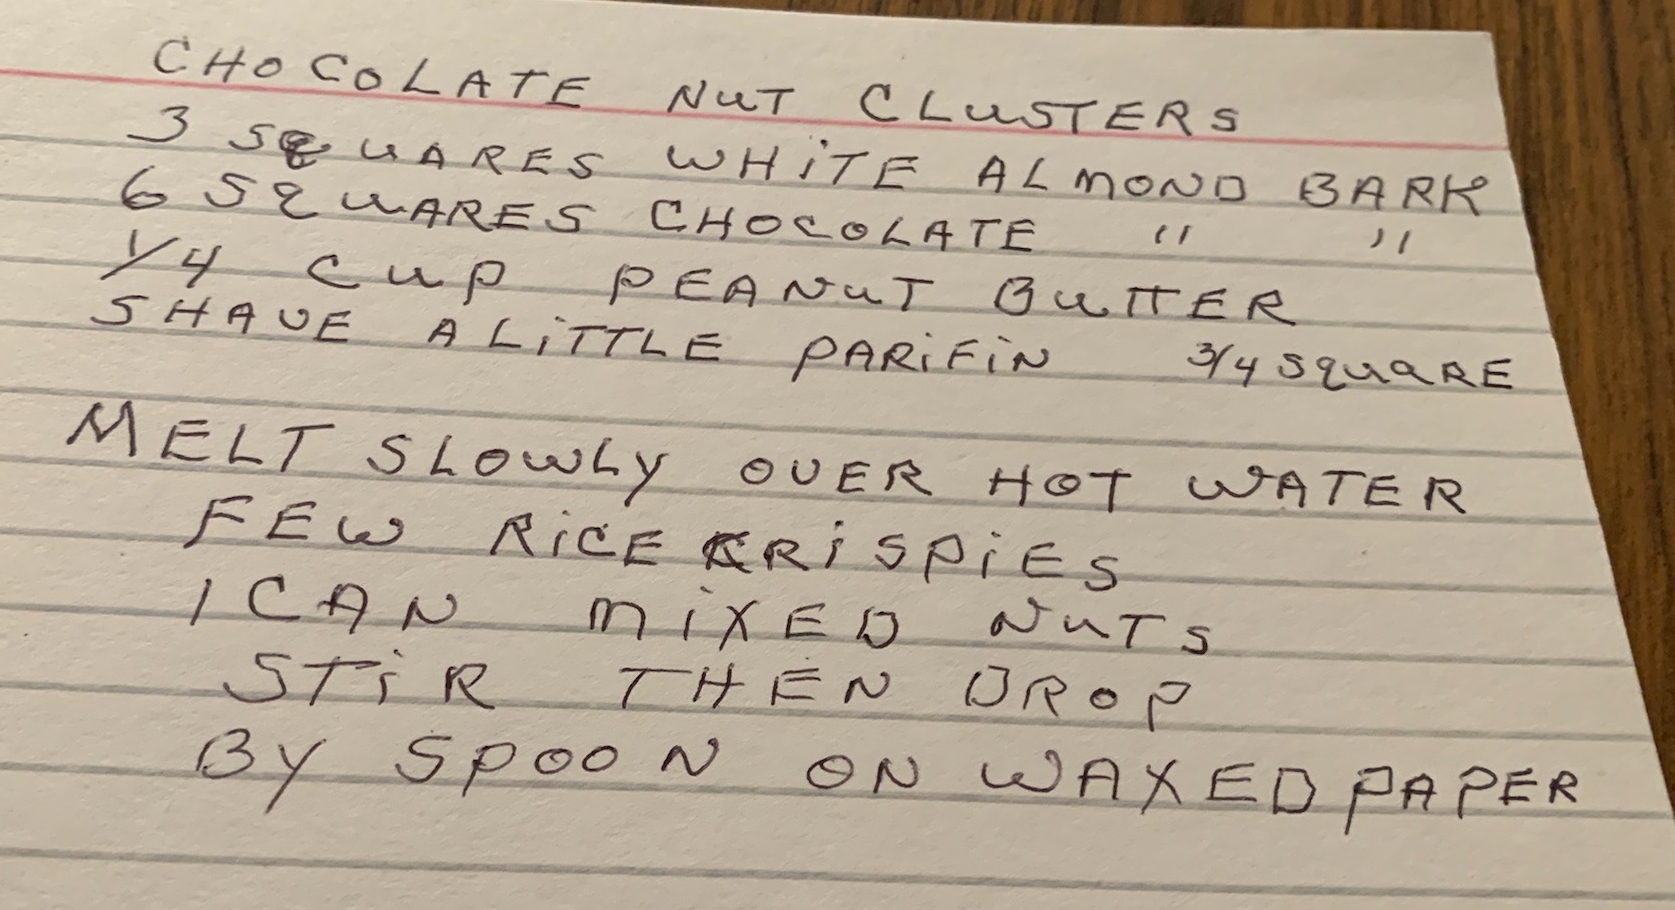 CHOCOLATE NUT CLUSTERS
3 SQUARES WHiTE ALMOND BARK
6 SQUARES CHOCOLATE " "
1/4 CUP PEANUT BUTTER
SHAVE A LiTTLE PARiFiN 3/4 SQUARE
MELT SLOWLY OVER HOT WATER
FEW RiCE KRiSPiES
1 CAN MiXED NUTS
STiR THEN DROP
BY SPOON ON WAXED PAPER